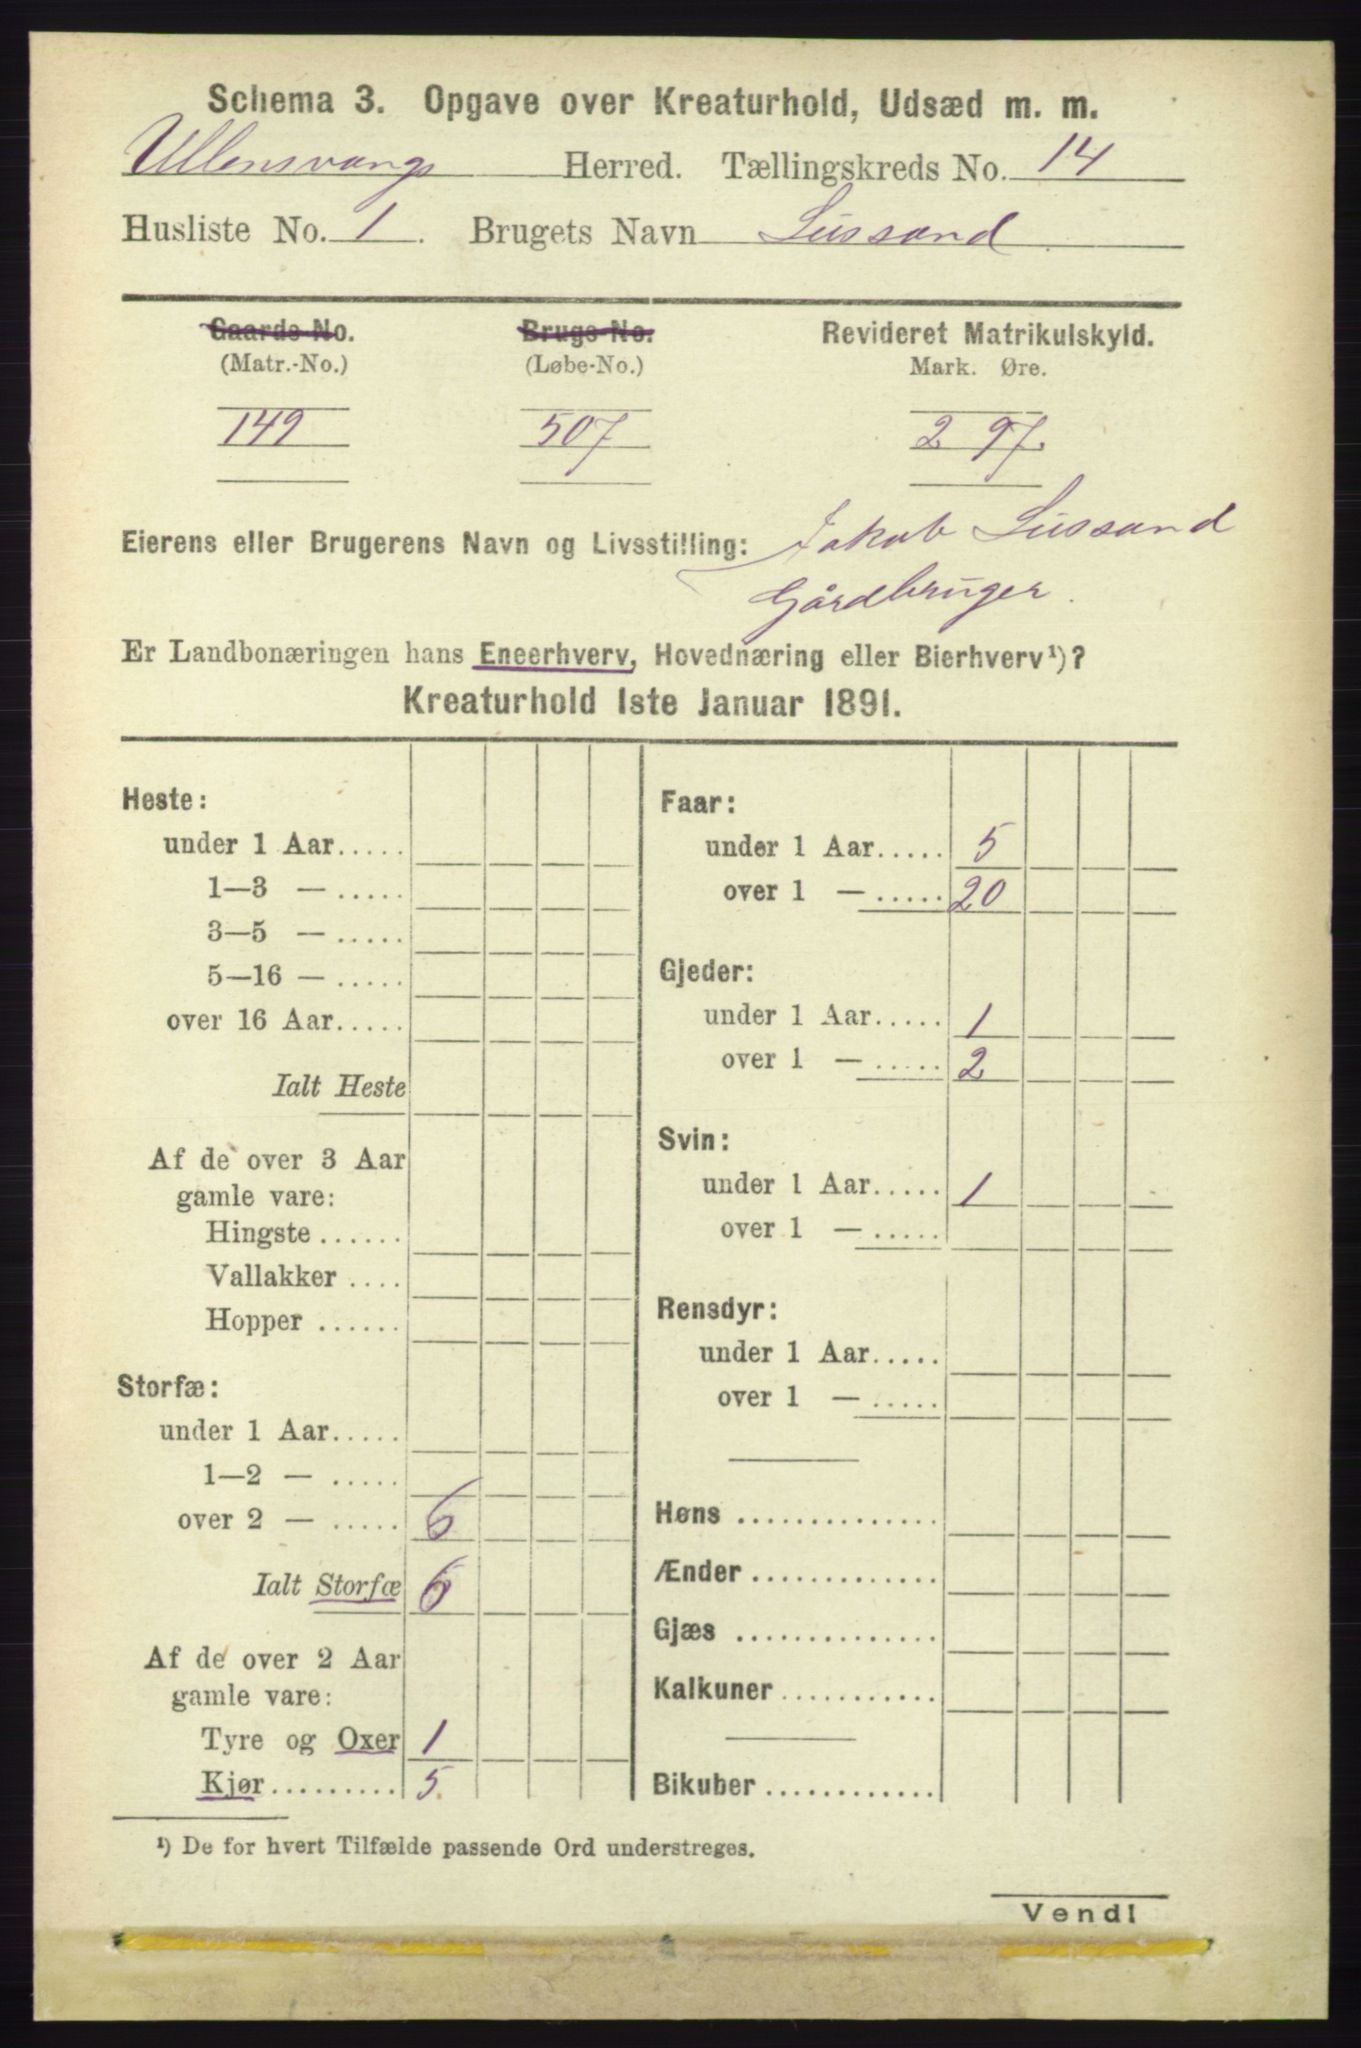 Schema 3. Opgave over Kreaturhold, Udsæd m. m.
Ullensvangs Herred. Tællingskreds No. 14
Husliste No. 1. Brugets Navn Lussand
Gaards-No. Brugs-No. Revideret Matrikulskyld.
(Matr.-No.) (Løbe-No.) Mark. Øre.
149 507 2 97.
Eierens eller Brugerens Navn og Livsstilling: Jakob Lussand
Gårdbruger.
Er Landbonæringen hans Eneerhverv, Hovednæring eller Bierhverv¹)?
Kreaturhold 1ste Januar 1891.
Heste:
under 1 Aar.....
1—3 — .....
3—5 — .....
5—16 — .....
over 16 Aar.....
Ialt Heste
Af de over 3 Aar
gamle vare:
Hingste ......
Vallakker ....
Hopper ......
Storfæ:
under 1 Aar.....
1—2 — .....
over 2 — ..... 6
Ialt Storfæ 6
Af de over 2 Aar
gamle vare:
Tyre og Oxer 1
Kjør......... 5.
Faar:
under 1 Aar..... 5
over 1 — ..... 20
Gjeder:
under 1 Aar..... 1
over 1 — ..... 2
Svin:
under 1 Aar..... 1
over 1 — .....
Rensdyr:
under 1 Aar.....
over 1 — .....
Høns ..............
Ænder .............
Gjæs ..............
Kalkuner ...........
Bikuber .............
¹) De for hvert Tilfælde passende Ord understreges.
Vend!